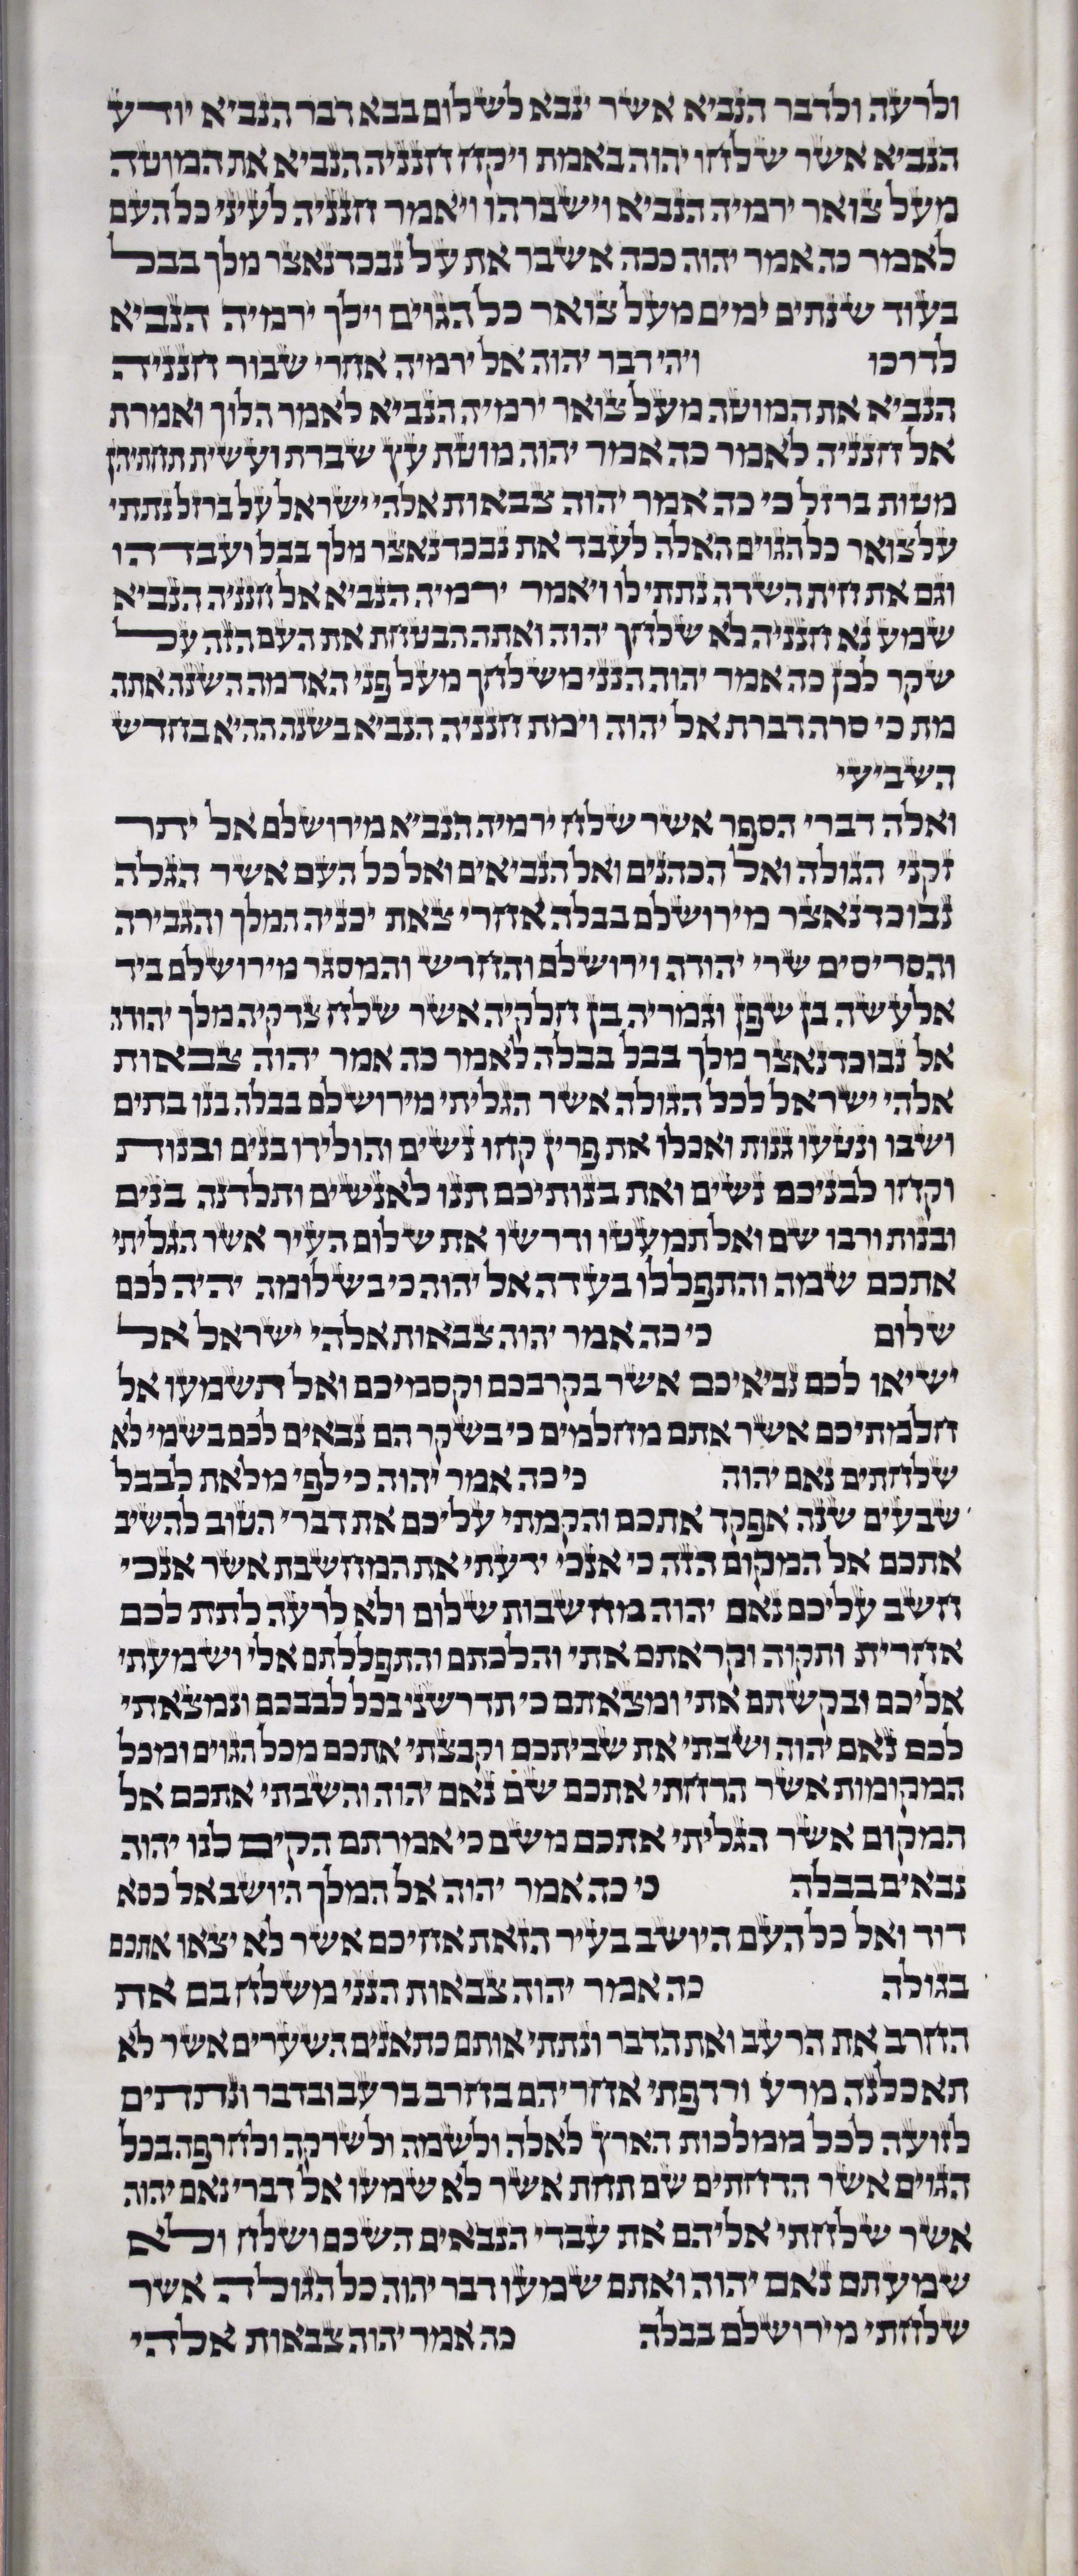 ולרעה ולדבר הנביא אשר ינבא לשלום בבא דבר הנביא יודע
הנביא אשר שלחו יהוה באמת ויקח חנניה הנביא את המוטה
מעל צואר ירמיה הנביא וישברהו ויאמר חנניה לעיני כל העם
לאמר כה אמר יהוה ככה אשבר את על נבכדנאצר מלך בבל
בעוד שנתים ימים מעל צואר כל הגוים וילך ירמיה הנביא
לדרכו ויהי דבר יהוה אל ירמיה אחרי שבור חנניה
הנביא את המוטה מעל צואר ירמיה הנביא לאמר הלוך ואמרת
אל חנניה לאמר כה אמר יהוה מוטת עץ שברת ועשית תחתיהן
מטות ברזל כי כה אמר יהוה צבאות אלהי ישראל על ברזל נתתי
על צואר כל הגוים האלה לעבד את נבכדנאצר מלך בבל ועבדהו
וגם את חית השדה נתתי לו ויאמר ירמיה הנביא אל חנניה הנביא
שמע נא חנניה לא שלחך יהוה ואתה הבטחת את העם הזה על
שקר לכן כה אמר יהוה הנני משלחך מעל פני האדמה השנה אתה
מת כי סרה דברת אל יהוה וימת חנניה הנביא בשנה ההיא בחדש
השביעי
ואלה דברי הספר אשר שלח ירמיה הנביא מירושלם אל יתר
זקני הגולה ואל הכהנים ואל הנביאים ואל כל העם אשר הגלה
נבוכדנאצר מירושלם בבלה אחרי צאת יכניה המלך והגבירה
והסריסים שרי יהודה וירושלם והחרש והמסגר מירושלם ביד
אלעשה בן שפן וגמריה בן חלקיה אשר שלח צדקיה מלך יהודה
אל נבוכדנאצר מלך בבל בבלה לאמר כה אמר יהוה צבאות
אלהי ישראל לכל הגולה אשר הגליתי מירושלם בבלה בנו בתים
ושבו ונטעו גנות ואכלו את פרין קחו נשים והולידו בנים ובנות
וקחו לבניכם נשים ואת בנותיכם תנו לאנשים ותלדנה בנים
ובנות ורבו שם ואל תמעטו ודרשו את שלום העיר אשר הגליתי
אתכם שמה והתפללו בעדה אל יהוה כי בשלומה יהיה לכם
שלום כי כה אמר יהוה צבאות אלהי ישראל אל
ישיאו לכם נביאיכם אשר בקרבכם וקסמיכם ואל תשמעו אל
חלמתיכם אשר אתם מחלמים כי בשקר הם נבאים לכם בשמי לא
שלחתים נאם יהוה כי כה אמר יהוה כי לפי מלאת לבבל
שבעים שנה אפקד אתכם והקמתי עליכם את דברי הטוב להשיב
אתכם אל המקום הזה כי אנכי ידעתי את המחשבת אשר אנכי
חשב עליכם נאם יהוה מחשבות שלום ולא לרעה לתת לכם
אחרית ותקוה וקראתם אתי והלכתם והתפללתם אלי ושמעתי
אליכם ובקשתם אתי ומצאתם כי תדרשני בכל לבבכם ונמצאתי
לכם נאם יהוה ושבתי את שביתכם וקבצתי אתכם מכל הגוים ומכל
המקומות אשר הדחתי אתכם שם נאם יהוה והשבתי אתכם אל
המקום אשר הגליתי אתכם משם כי אמרתם הקים לנו יהוה
נבאים בבלה כי כה אמר יהוה אל המלך היושב אל כסא
דוד ואל כל העם היושב בעיר הזאת אחיכם אשר לא יצאו אתכם
בגולה כה אמר יהוה צבאות הנני משלח בם את
החרב את הרעב ואת הדבר ונתתי אותם כתאנים השערים אשר לא
תאכלנה מרע ורדפתי אחריהם בחרב ברעב ובדבר ונתתים
לזועה לכל ממלכות הארץ לאלה ולשמה ולשרקה ולחרפה בכל
הגוים אשר הדחתים שם תחת אשר לא שמעו אל דברי נאם יהוה
אשר שלחתי אליהם את עבדי הנבאים השכם ושלח ולא
שמעתם נאם יהוה ואתם שמעו דבר יהוה כל הגולה אשר
שלחתי מירושלם בבלה כה אמר יהוה צבאות אלהי